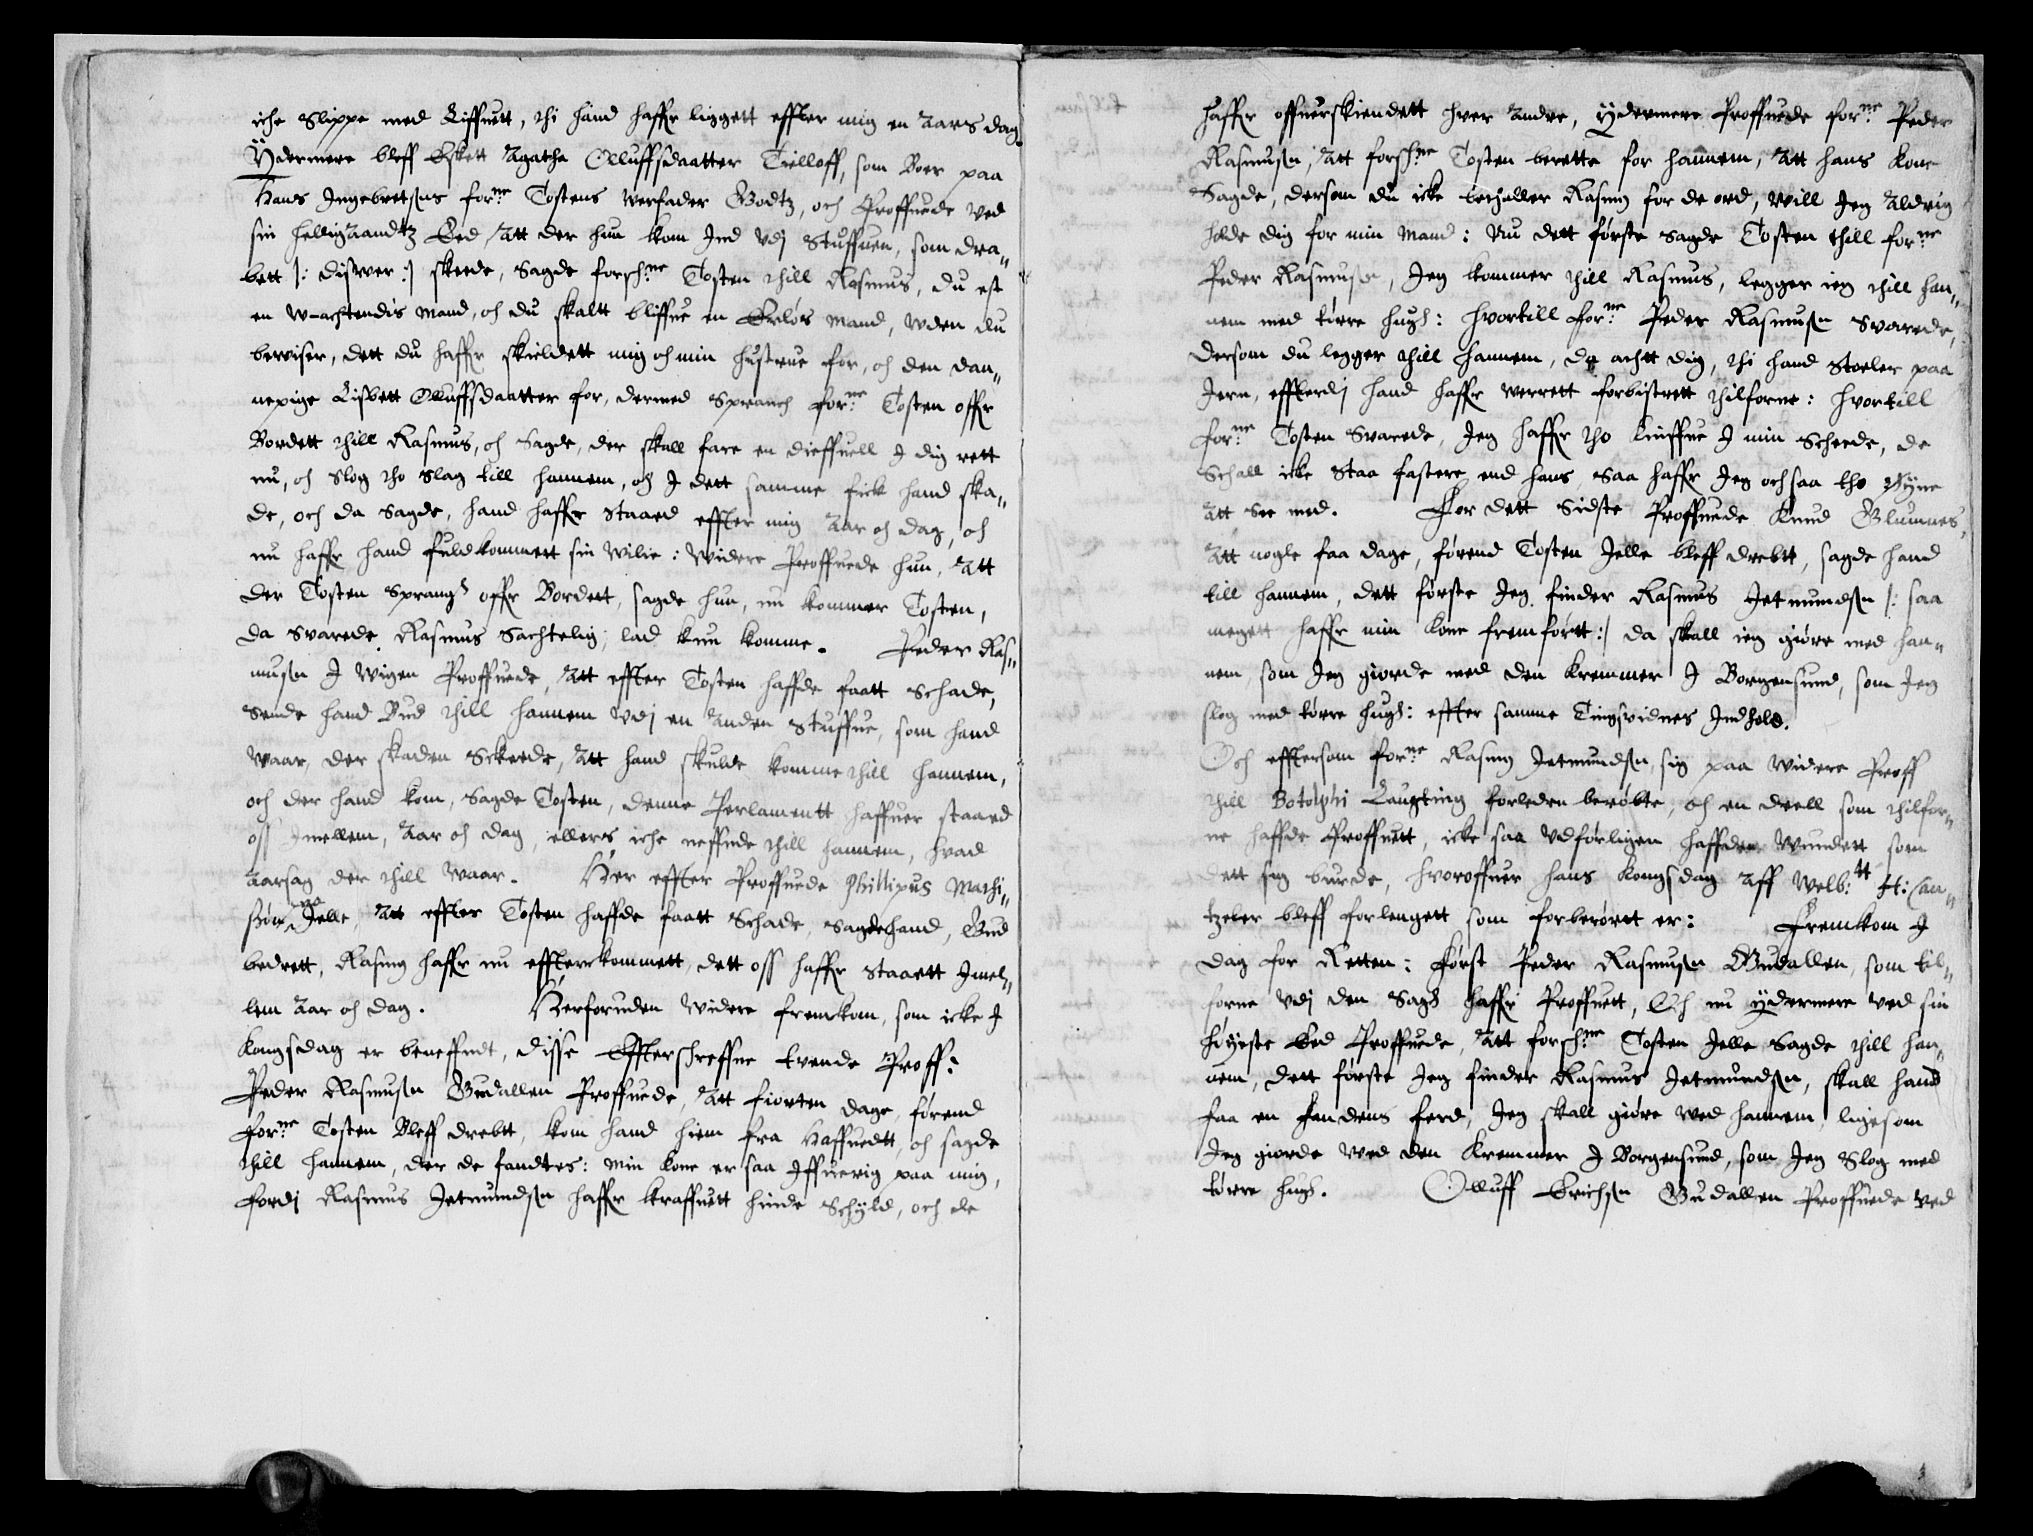 iche Slippe med Liffuett, thi hånd haffr liggett effter mig en Aars dag.
Ÿdermere bleff Esket Agathe Olluffsdaatter Tielloff, som Boer paa
Hans Ingebretsens for:ne Tostens Werfader Godtz, och Proffuede Ved
sin helligAandtz Eed, Att der hun kom Ind Vdj Stuffuen, som dra-
bett /: diswer :/ skeede, Sagde forsch:ne Tosten thill Rasmus, du est
en W-achtendis Mand, och du skaltt bliffue en Ærløs Mand, Uden du
beviser, dett du haffr skieldett mig och min hustrue for, och den dan-
nepige Lisbett Olluffsdaatter for, dermed Spranch for:ne Tosten offr
Bordett thill Rasmus, och Sagde, der skall fare en dieffuell I dig rett
nu, och Slog tho Slag till hannem, och I dett samme fick hand ska-
de, och da Sagde, hand haffr Staaed effter mig Aar och dag, och
nu haffr hand fuldkommett sin Wilie: Widere Proffuede hun, Att
der Tosten Sprangh offr Bordett, sagde hun, nu kommer Tosten,
da Svarede Rasmus Sachtelig, lad kun komme. Peder Ras-
musen I Wigen Proffuede, Att effter Tosten haffde faatt Schade,
Sende hand Bud thill hannem Vdj en Anden Stuffue, som hand
Waar, der skaden Skeede, Att hand skulde komme thill hannem,
och der hand kom, Sagde Tosten, denne Perlamentt haffuer staaed
oss Imellem, Aar och dag, ellers iche neffnde thill hannem, hvad
Aarsag der thill Waar. Her effter Proffuede Phillipus Mathi-
ßøn Jelle, Att effter Tosten haffde faatt Schade, Sagde hand, Gud
bedrett, Rasmus haffr nu effterkommett, dett oss haffr Staaett Imel-
lem Aar och dag. Herforuden Widere fremkom, som icke I
Kongsdag er beneffndt, disse Effterschreffne tvende Proff:
Peder Rasmusen Gudallen Proffuede, Att fiorten dage, førend
for:ne Tosten Bleff drebtt, kom hand hiem fra Haffuedtt, och sagde
thill hannem, der de fandtes: Min kone er saa Iffuerig paa mig,
fordj Rasmus Jetmundsen haffr kraffuett hinde Schÿld, och de
haffr offuerskiendett hver Andre, Ÿdermere Proffuede for:ne Peder
Rasmusen, Att forsch:ne Tosten berette for hannem, Att hans kone
Sagde, dersom du icke betaller Rasmus for de ord, Will Jeg Aldrig
holde dig for min Mand: Nu dett første Sagde Tosten thill for:ne
Peder Rasmusen, Jeg kommer thill Rasmus, legger ieg thill han-
nem med tørre hugh: hvortill for:ne Peder Rasmusen Svarede,
dersom du legger thill hannem, da achtt dig, thi hand Stoeler paa
Jern, effterdj hand haffr verrett forbistrett thilforne: hvortill
for:ne Tosten Svarede, Jeg haffr tho kniffue I min Scheede, de
Schall icke Staa fastere end hans, Saa haffr Jeg ochsaa tho Øÿne
Att See med. For dett Sidste Proffuede Knud Glumnes,
Att nogle faa dage, førend Tosten Jelle bleff drebtt, sagde hand
till hannem, dett første Jeg finder Rasmus Jetmundsen /: saa
megett haffr min kone fremførtt :/ da skall ieg giøre med han-
nem, som Jeg giorde med den kremmer I Borgensund, som Jeg
slog med tørre hugh: effter samme Tingsvidnes Indhold.
Och efftersom for:ne Rasmus Jetmundsen, sig paa Widere Proff
thill Botolphi Laugting forleden berøbte, och en deell som thilfor-
ne haffde Proffuett, icke saa Vdførligen haffde Wundett som
dett sig burde, hvoroffuer hans kongsdag Aff Welb:tt H: Can-
tzeler bleff forlengett som forberørtt er: Fremkom I
dag for Retten: Først Peder Rasmusen Gudallen, som til-
forne Vdj den Sagh haffr Proffuett, Och nu Ÿdermere ved sin
Høÿeste Eed Proffuede, Att forsch:ne Tosten Jelle Sagde thill han-
nem, dett første Jeg finder Rasmus Jetmundsen, skall hand
faa en fandens ferd, Jeg skall giøre Ved hannem, ligesom
Jeg giorde Ved den kremmer I Borgensund, som Jeg Slog med
tørre hugh. Olluff Erichsen Gudallen Proffuede Ved